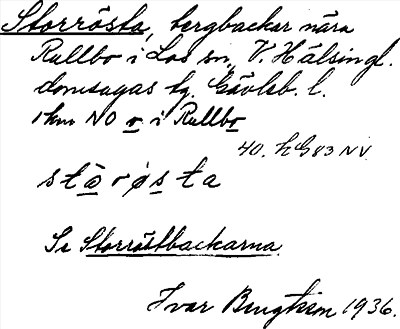 Storrösta, bergbackar nära
Rullbo i Los sn, V. Hälsingl.
domsagas tg. Gävleb. l.
1 km NO o i Rullbo
40. h G83 NV
stòrøsta
Se Storröstbackarna.
Ivar Bengtsson 1936.